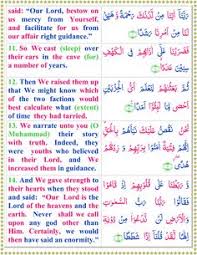 said: “Our Lord, bestow on
us mercy from Yourself,
and facilitate for us from
our affair right guidance.”
11. So We cast (sleep) over
their ears in the cave (for)
a number of years.
12. Then We raised them up
that We might know which
of the two factions would
best calculate what (extent)
of time they had tarried.
13. We narrate unto you (O
Muhammad) their story
with truth. Indeed, they
were youths who believed
in their Lord, and We
increased them in guidance.
14. And We gave strength to
their hearts when they stood
and said: “Our Lord is the
Lord of the heavens and the
earth. Never shall we call
upon any god other than
Him. Certainly, we would
then have said an enormity.”
رَبَّنَآ اٰتِنَا مِنْ لَّدُنْكَ رَحْمَةً وَّ
هَيِّئْ لَنَا مِنْ اَمْرِنَا رَشَدًا
فَضَرَبْنَا عَلٰٓى اٰذَانِهِمْ فِى الْكَهْفِ
سِنِيْنَ عَدَدًا
ثُمَّ بَعَثْنٰهُمْ لِنَعْلَمَ اَىُّ الْحِزْبَيْنِ
اَحْصٰى لِمَا لَبِثُوْٓا اَمَدًا
نَحْنُ نَقُصُّ عَلَيْكَ نَبَاَهُمْ بِالْحَقِّ
اِنَّهُمْ فِتْيَةٌ اٰمَنُوْا بِرَبِّهِمْ وَزِدْنٰهُمْ
هُدًى
وَّرَبَطْنَا عَلٰى قُلُوْبِهِمْ اِذْ قَامُوْا
فَقَالُوْا رَبُّنَا رَبُّ السَّمٰوٰتِ وَ
الْاَرْضِ لَنْ نَّدْعُوَاۡ مِنْ دُوْنِهٖٓ
اِلٰهًا لَّقَدْ قُلْنَآ اِذًا شَطَطًا